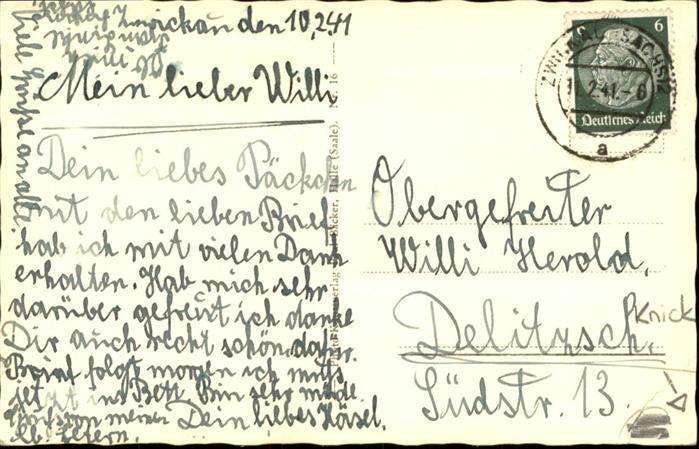 Zwickau den 10.2.41
Mein lieber Willi
Dein liebes Päckchen
mit den lieben Brief
hab ich mit vielen Dank
erhalten. Hab mich sehr
darüber gefreut ich danke
Dir auch recht schön dafür.
Brief folgt morgen ich muß
jetzt ins Bett. Bin sehr müde
von meinen Dein liebes Häsel.
lb. Eltern.
Viele Grüße an alle
Halle (Saale). Nr. 16
6
Deutsches Reich
ZWICKAU (SACHS) 2
11.2.41.-6
a
Obergefreiter
Willi Herold,
Delitzsch,
Knick
Südstr. 13.